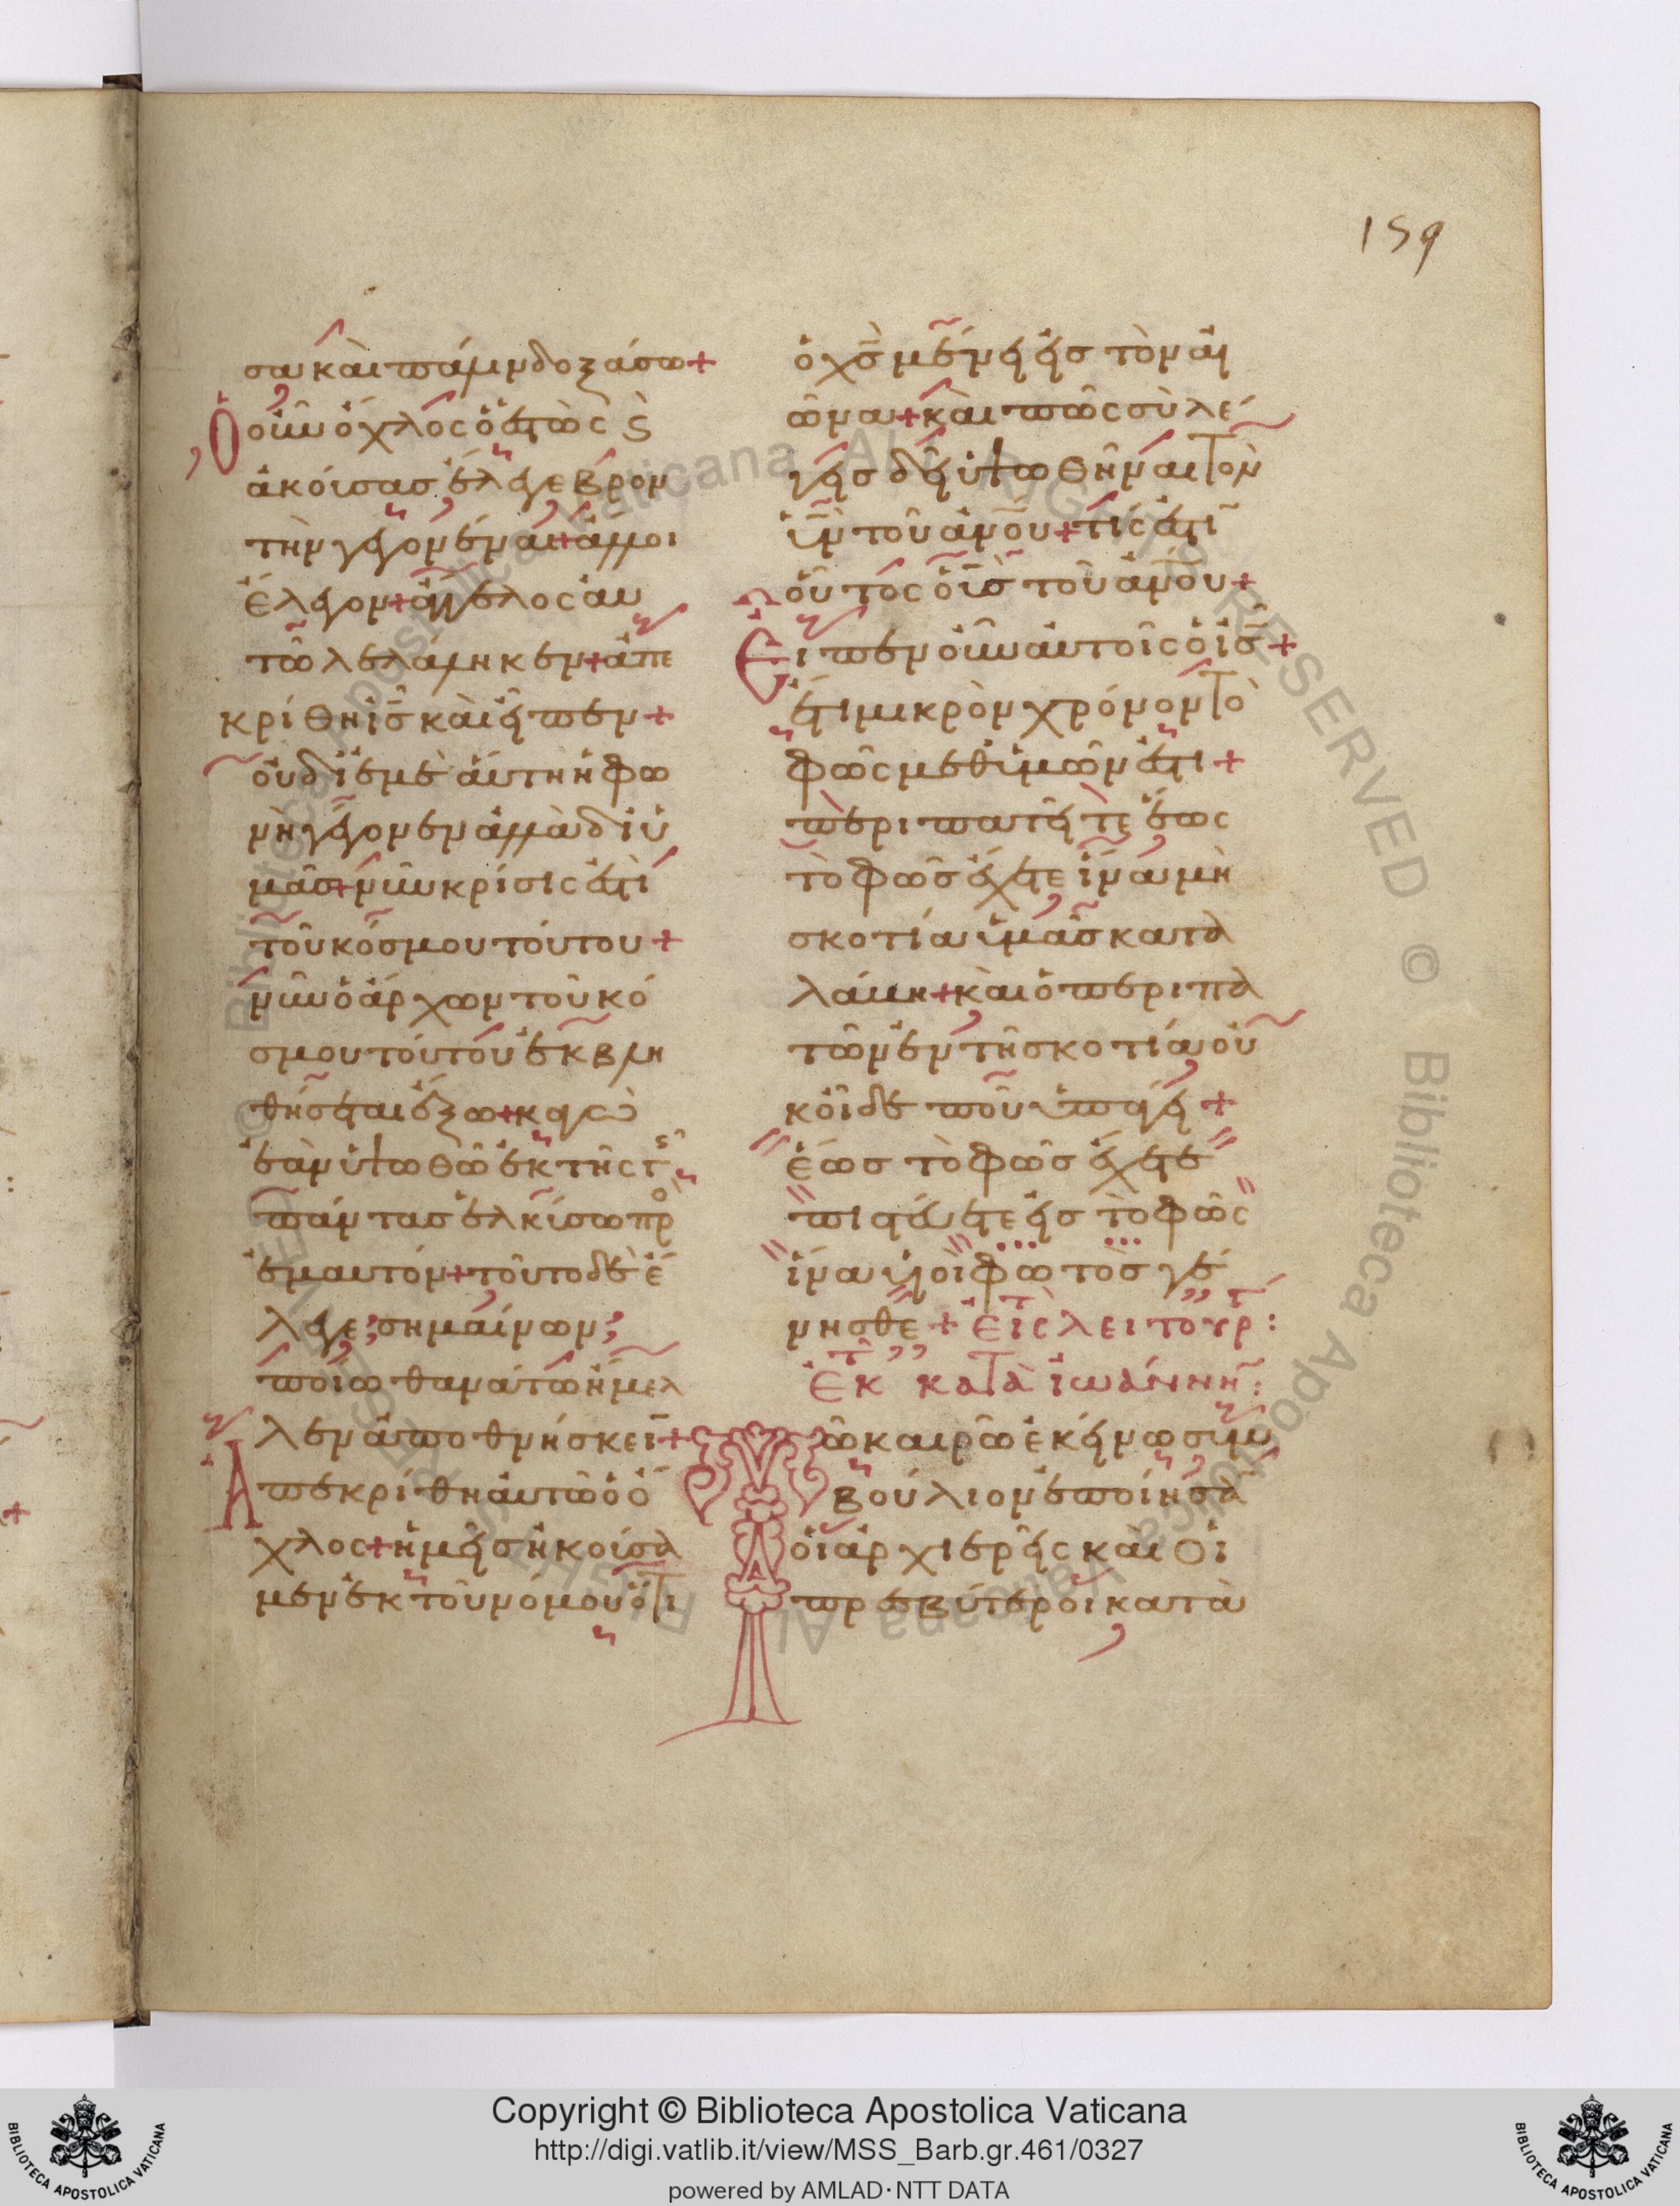 159
σα καὶ πάλιν δοξάσω +
Ὁ οὖν ὄχλος ὁ ἑστὼς ϛ
ἀκούσας ἔλεγε βρον
τὴν γεγονέναι + ἄλλοι
ἔλεγον + ἄγγελος αυ
τῶ λελάληκεν + ἀπε
κρίθη ὁ ις καὶ εἶπεν +
οὐ δι ἐμὲ αὕτη ἡ φω
νὴ γέγονεν ἀλλὰ δι ὑ
μᾶς + νῦν κρίσις ἐστὶ
τοῦ κόσμου τούτου +
νῦν ὁ ἄρχων τοῦ κό
σμου τούτου ἐκβλη
θήσεται ἔξω + καγὼ
ἐὰν ὑψωθῶ ἐκ τῆς γῆς
πάντας ἑλκύσω πρὸ
ἐμαυτόν + τοῦτο δὲ ἔ
λεγε σημαίνων
ποίω θανάτω ἤμελ
λεν ἀποθνήσκειν +
Ἀπεκρίθη αὐτῶ ὁ ὄ
χλος + ἡμεῖς ἠκούσα
μεν ἐκ τοῦ νόμου ὅτι
ὁ χς μένει εἰς τὸν αἰ
ῶνα + καὶ πῶς σὺ λέ
γεις δεῖ ὑψωθῆναι τὸν
υν τοῦ ανου + τίς ἐστιν
οὗτος ὁ υς τοῦ ανου +
Εἶπεν οὖν αὐτοῖς ὁ ις +
ἔτι μικρὸν χρόνον τὸ
φῶς μεθ ὑμῶν ἐστι +
περιπατεῖτε ἕως
τὸ φῶς ἔχετε ἵνα μὴ
σκοτία ὑμᾶς κατα
λάβη + καὶ ὁ περιπα
τῶν ἐν τῆ σκοτία οὐ
κ οἶδε ποῦ ὑπάγει +
ἕως τὸ φῶς ἔχετε
πιστεύετε εἰς τὸ φῶς
ἵνα υἱοὶ φωτὸς γέ
νησθε + Εἰς λειτουρ :
Ἐκ τ κατὰ ἰωάννην :
Τῶ καιρῶ ἐκείνω συμ
βούλιον ἐποίησα
οἱ ἀρχιερεῖς καὶ οἱ
πρεσβύτεροι κατὰ
© Biblioteca Apostolica Vaticana ALL RIGHTS RESERVED © Biblioteca Apostolica Vaticana ALL RIGHTS RESERVED
Copyright © Biblioteca Apostolica Vaticana
http://digi.vatlib.it/view/MSS_Barb.gr.461/0327
powered by AMLAD·NTT DATA
BIBLIOTECA APOSTOLICA VATICANA
BIBLIOTECA APOSTOLICA VATICANA